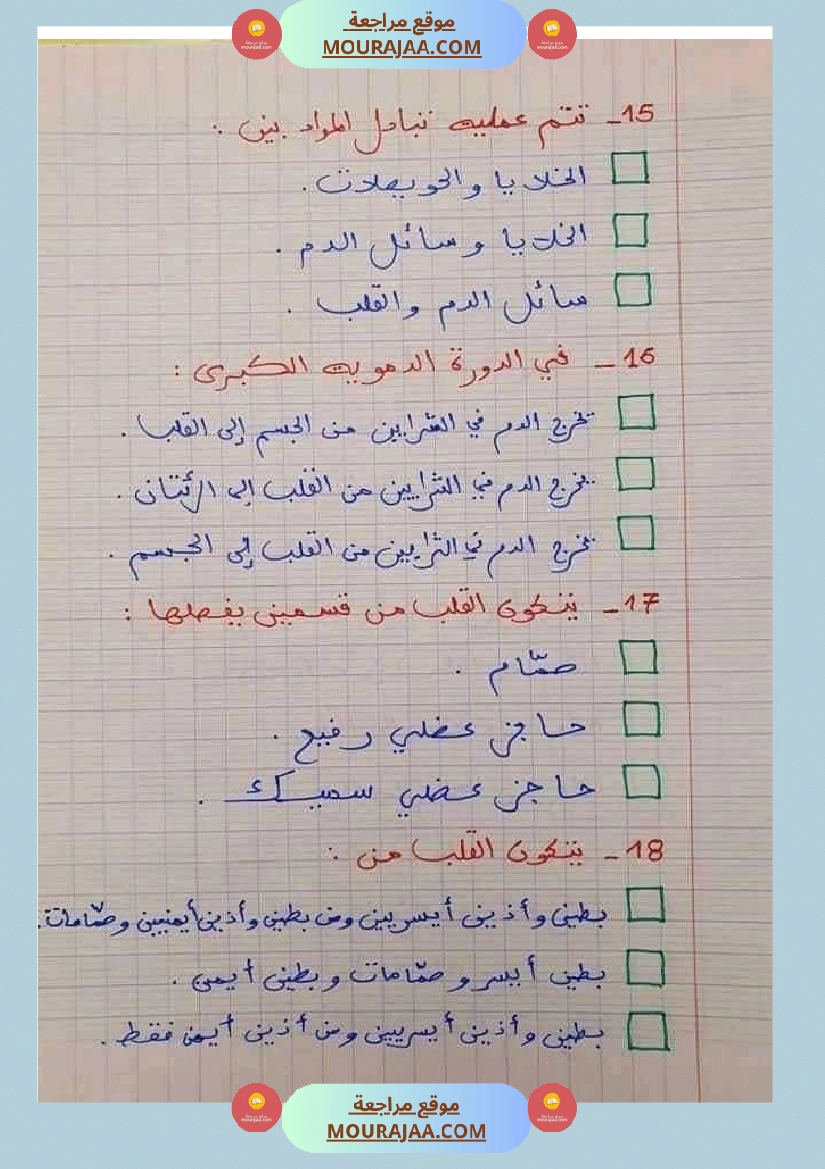 موقع مراجعة
MOURAJAA.COM
15_ تتم عملية تبادل المواد بين :
الخلايا والحويصلات.
الخلايا وسائل الدم .
سائل الدم والقلب .
16_ في الدورة الدموية الكبرى :
يخرج الدم في الشرايين من الجسم إلى القلب .
يخرج الدم في الشرايين من القلب إلى الرئتان .
يخرج الدم في الشرايين من القلب إلى الجسم .
17_ يتكون القلب من قسمين يفصلها :
صمّام .
حاجز عضلي رفيع .
حاجز عضلي سميك .
18_ يتكون القلب من :
بطين وأذين أيسريين ومن بطين وأذين أيمنيين وصمّامات.
بطين أيسر وصمّامات وبطين أيمن .
بطين وأذين أيسريين ومن أذين أيمن فقط .
موقع مراجعة
MOURAJAA.COM